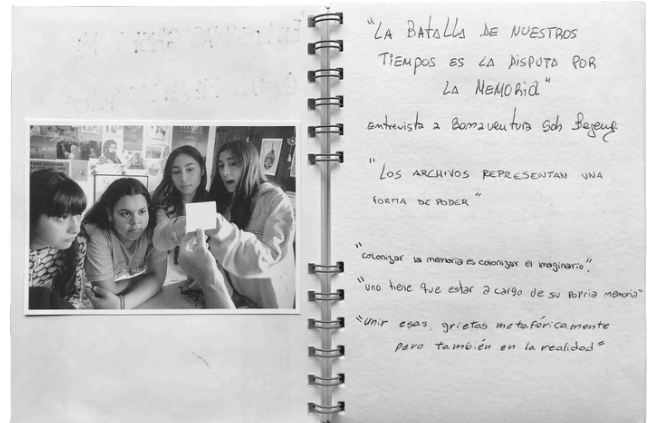 "LA BATALLA DE NUESTROS
TIEMPOS ES LA DISPUTA POR
LA MEMORIA"
Entrevista a Bonaventura Soh
"LOS ARCHIVOS REPRESENTAN UNA
FORMA DE PODER"
"colonizar la memoria es colonizar el imaginario".
"uno tiene que estar a cargo de su popria memoria"
"unir esas grietas metafóricamente
pero también en la realidad"